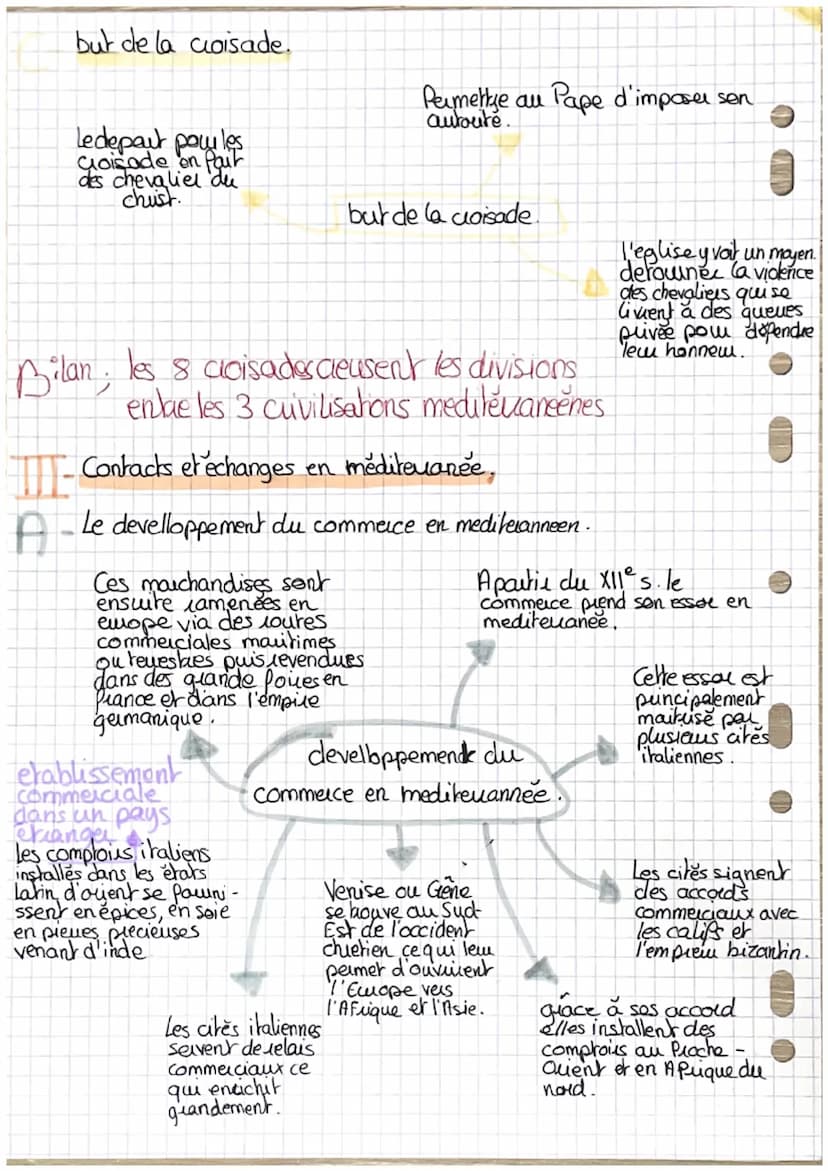 but de la croisade.
Permettre au Pape d'imposer son
autorité.
Le depart pour les
croisade on fait
des chevalier du
christ.
but de la croisade.
l'eglise y voit un moyen
derouner la violence
des chevaliers qui se
livrent à des guerres
privée pour défendre
leur honneur.
Bilan ; les 8 croisades creusent les divisions
entre les 3 cuivilisations mediterranéenes
III- Contacts et échanges en méditerranée.
A - Le develloppement du commerce en mediteranneen.
Ces marchandises sont
ensuite ramenées en
europe via des routes
commerciales maritimes
ou terrestres puis revendues
dans des grande foires en
france et dans l'empire
germanique.
A partir du XIIe s. le
commerce prend son essor en
mediterranée.
Cette essor est
principalement
maitrisé par
plusieurs cités
italiennes.
developpement du
commerce en mediterrannée.
etablissement
commerciale
dans un pays
étranger
les comptoirs italiens
installés dans les états
latin d'orient se fourni-
ssent en épices, en soie
en pierres précieuses
venant d'inde
Venise ou Gêne
se trouve au Sud
Est de l'occident
chretien ce qui leur
permet d'ouvrirent
l'Europe vers
l'Afrique et l'Asie.
Les cités signent
des accords
commerciaux avec
les califs et
l'empreir bizantin.
Les cités italiennes
servent de relais
commerciaux ce
qui enrichit
grandement.
grâce à ses accord
elles installent des
comptoirs au Proche -
Orient et en Afrique du
nord.